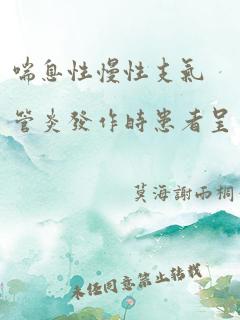 喘息性慢性支氣
管炎發作時患者呈
莫海謝雨桐
未經同意禁止轉載